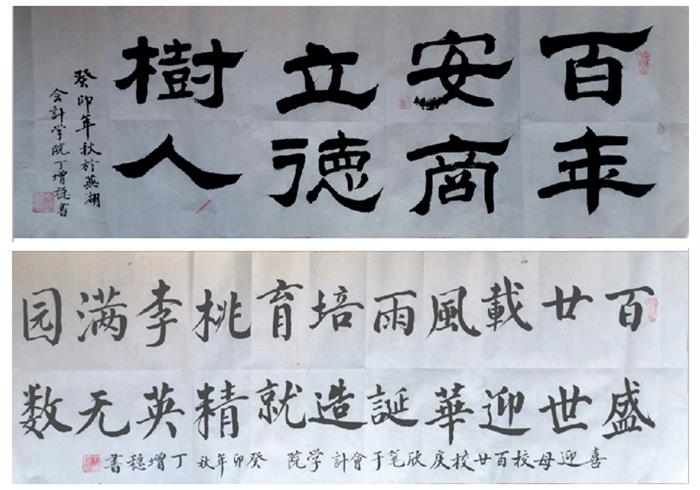 百年
安商
立德
樹人
癸卯年秋於蕪湖
会計学院丁增穩書
百廿載風雨培育桃李满园
盛世迎華誕造就精英无数
喜迎母校百廿校庆欣笔于會計学院 癸卯年秋 丁增穩書